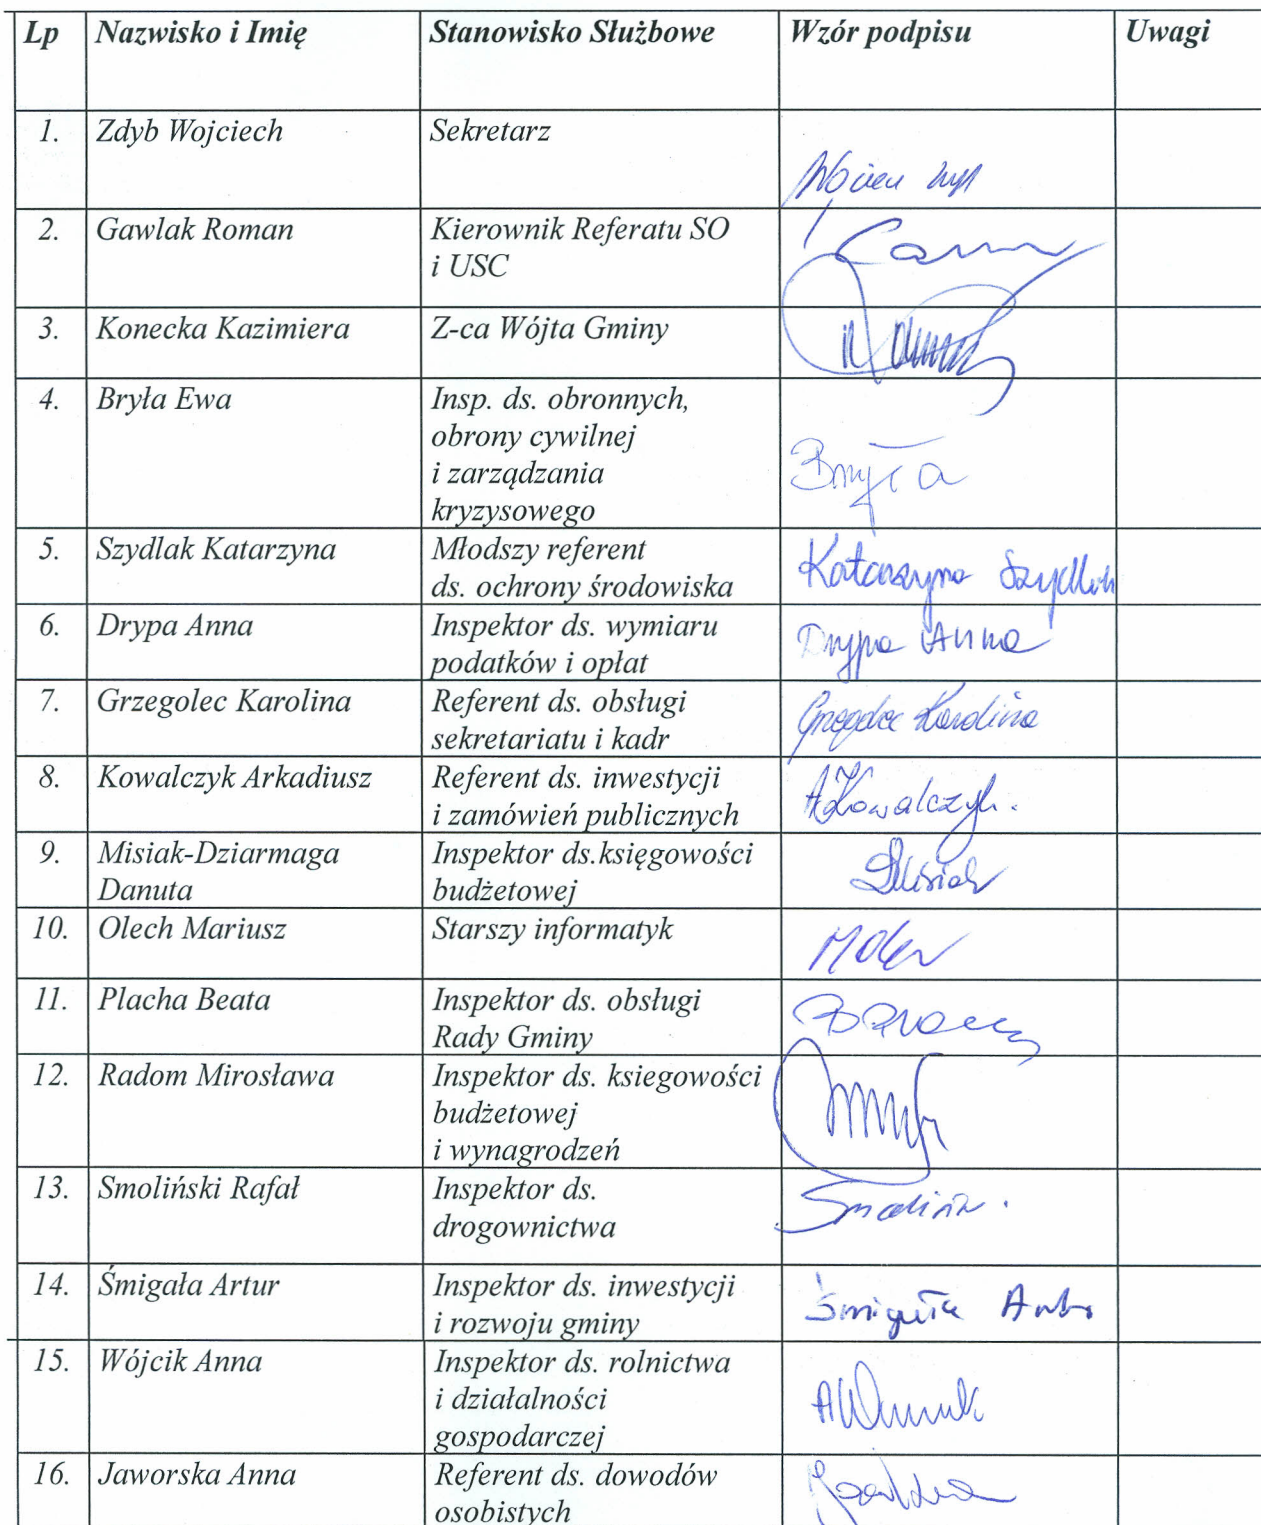 Lp Nazwisko i Imię Stanowisko Służbowe Wzór podpisu Uwagi
1. Zdyb Wojciech Sekretarz
2. Gawlak Roman Kierownik Referatu SO
i USC
3. Konecka Kazimiera Z-ca Wójta Gminy
4. Bryła Ewa Insp. ds. obronnych,
obrony cywilnej
i zarządzania Bryła
kryzysowego
5. Szydlak Katarzyna Młodszy referent
ds. ochrony środowiska Katarzyna Szydlak
6. Drypa Anna Inspektor ds. wymiaru Drypa Anna
podatków i opłat
7. Grzegolec Karolina Referent ds. obsługi Grzegolec Karolina
sekretariatu i kadr
8. Kowalczyk Arkadiusz Referent ds. inwestycji AKowalczyk.
i zamówień publicznych
9. Misiak-Dziarmaga Inspektor ds.księgowości
Danuta budżetowej DMisiak
10. Olech Mariusz Starszy informatyk
11. Placha Beata Inspektor ds. obsługi
Rady Gminy
12. Radom Mirosława Inspektor ds. ksiegowości
budżetowej
i wynagrodzeń
13. Smoliński Rafał Inspektor ds.
drogownictwa
14. Śmigała Artur Inspektor ds. inwestycji Śmigała Artur
i rozwoju gminy
15. Wójcik Anna Inspektor ds. rolnictwa
i działalności
gospodarczej
16. Jaworska Anna Referent ds. dowodów
osobistych